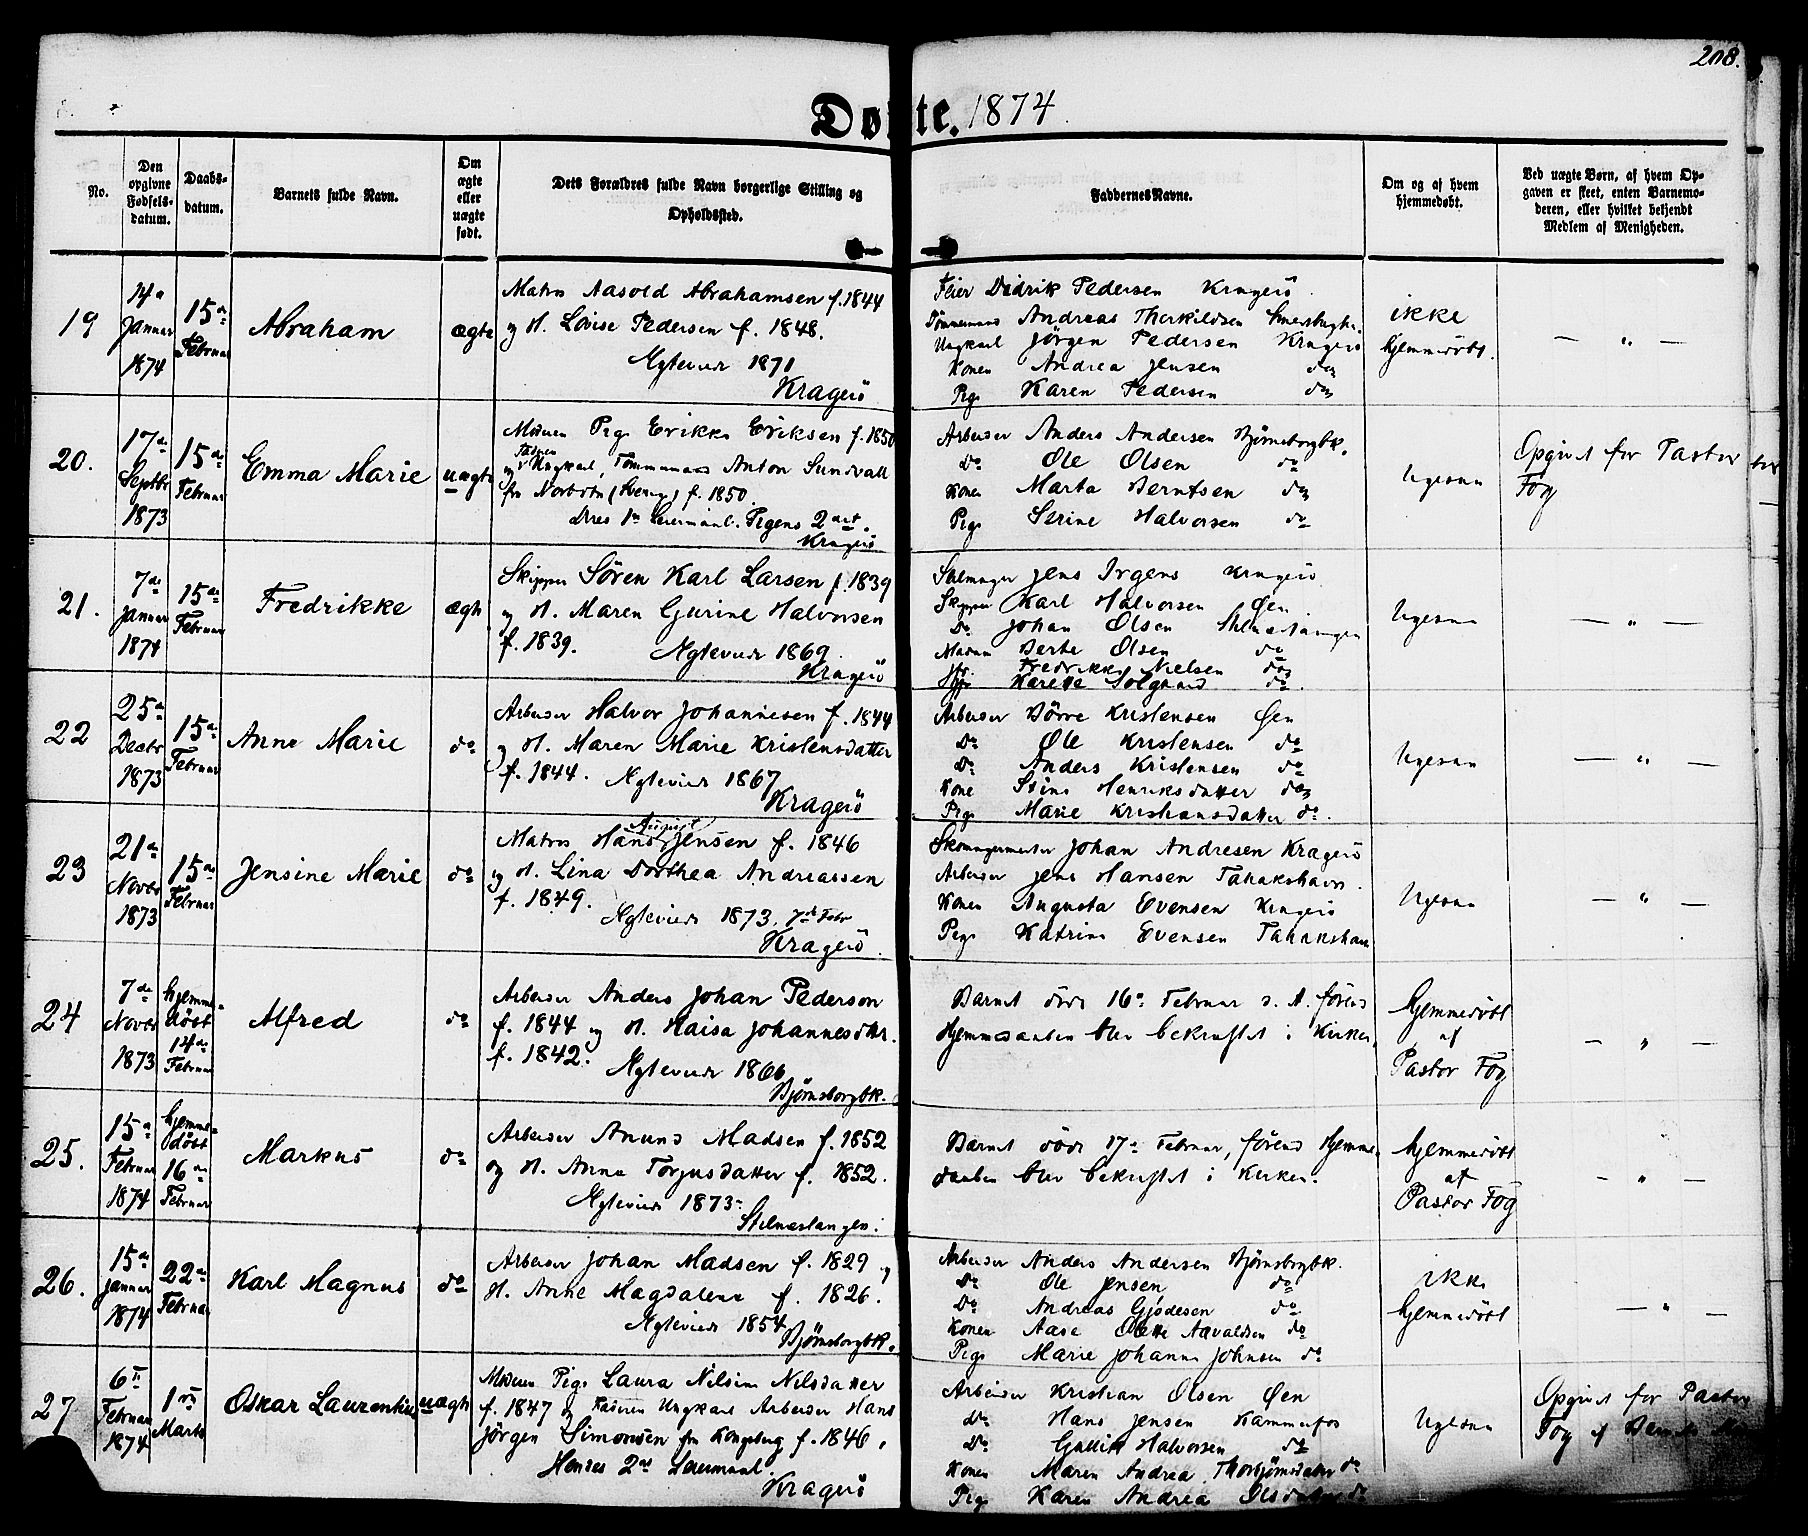 208.
Døbte. 1874.
No.
Den opgivne Fødselsdatum.
Daabsdatum.
Barnets fulde Navn.
Om ægte eller uægte født.
Dets Forældres fulde Navn borgerlige Stilling og Opholdssted.
Faddernes Navne.
Om og af hvem hjemmedøbt.
Ved uægte Børn, af hvem Opgaven er skeet, enten Barnemoderen, eller hvilket bekjendt Medlem af Menigheden.
19
14de Januar 1874
15de Februar
Abraham
ægte
Matros Aasold Abrahamsen f. 1844
og H. Lovise Pedersen f. 1848.
Ægteviede 1871
Kragerö
Feier Didrik Pedersen Kragerö
Tømmermand Andreas Therkildsen
Ungkarl Jörgen Pedersen Kragerö
Konen Andrea Jensen do
Pige Karen Pedersen do
ikke hjemmedöbt.
— " —
20.
17de Septbr 1873
15de Februar
Emma Marie
uægte
Moderen Pige Erikke Eriksen f. 1850
og Faderen Ungkarl, Tømmermand Anton Sundvall
fra Norbotn (Sverig) f. 1850.
Deres 1ste Leiermaal. Pigens 2det.
Kragerö
Arbeider Anders Andersen Bjørnsborgbk.
Do Ole Olsen do
Konen Marta Berntsen do
Pige Serine Halvorsen do
Ligesaa
Opgivet for Pastor
Fog
21.
7de Januar 1874
15de Februar
Fredrikke
ægte
Skipper Sören Karl Larsen f. 1839
og H. Maren Gurine Halvorsen
f. 1839. Ægteviede 1869.
Kragerö
Jens Irgens Kragerö
Skipper Karl Halvorsen Øen
Do Johan Olsen Stilnestangen
Madam Berte Olsen do
Jfr. Fredrikke Nielsen do
Jfr. Karette Solgaard do.
Ligesaa
— " —
22
25de Decbr 1873
15de Februar
Anne Marie
do
Arbeider Halvor Johannesen f. 1844
og H. Maren Marie Kristensdatter
f. 1844. Ægteviede 1867
Kragerö
Arbeider Börre Kristensen Øen
Do Ole Kristensen do
Do Anders Kristensen do
Kone Stine Henriksdatter do
Pige Marie Kristiansdatter do.
Ligesaa
— " —
23
21de Novbr 1873
15de Februar
Jensine Marie
do
Matros Hans August Jensen f. 1846
og H. Lina Dorthea Andreassen
f. 1849. Ægteviede 1873. 7de Febr
Kragerö.
Skomagermester Johan Andresen Kragerö
Arbeider Jens Hansen Tahakshavn.
Konen Augusta Evensen Kragerö
Pige Katrine Evensen Tahakshavn
Ligesaa
— " —
24
7de Novbr 1873
hjemmedöbt 14de Februar
Alfred
do
Arbeider Anders Johan Pederson
f. 1844 og H. Kaisa Johannesdtr.
f. 1842. Ægteviede 1866
Bjørnsborgbk.
Barnet döde 16de Februar s. A. förend
Hjemmedaaben blev bekræftet i Kirken.
hjemmedöbt af Pastor Fog
— " —
25.
15de Februar 1874
hjemmedöbt 16de Februar
Markus
do
Arbeider Anund Madsen f. 1852
og H. Anne Torjusdatter f. 1852.
Ægteviede 1873
Stilnestangen.
Barnet döde 17de Februar, förend Hjemmedaaben blev bekræftet i Kirken.
hjemmedöbt af Pastor Fog
— " —
26.
15de Januar 1874
22de Februar
Karl Magnus
do
Arbeider Johan Madsen f. 1829 og
H. Anne Magdalena f. 1826.
Ægteviede 1854
Bjørnsborgbk.
Arbeider Anders Andersen Bjørnsborgbk.
Do Ole Jensen do
Do Andreas Gjödesen do
Konen Aase Olette Aavaldsen do
Pige Marie Johanne Johnsen do
ikke hjemmedöbt
— " —
27
6te Februar 1874
1ste Marts
Oskar Laurentius
uægte
Moderen Pige Laura Nilsine Nilsdatter
f. 1847 og Faderen Ungkarl Arbeider Hans
Jörgen Simonsen fra Kongsberg f. 1846.
Henres 2det Leiermaal.
Kragerö
Arbeider Kristian Olsen Øen
do Hans Jensen Kammerfos
Do Gullik Halvorsen do
Konen Maren Andrea Thorbjörnsdatter do
Pige Karen Andrea Olsdatter do
Ligesaa
Opgivet for Pastor
Fog af